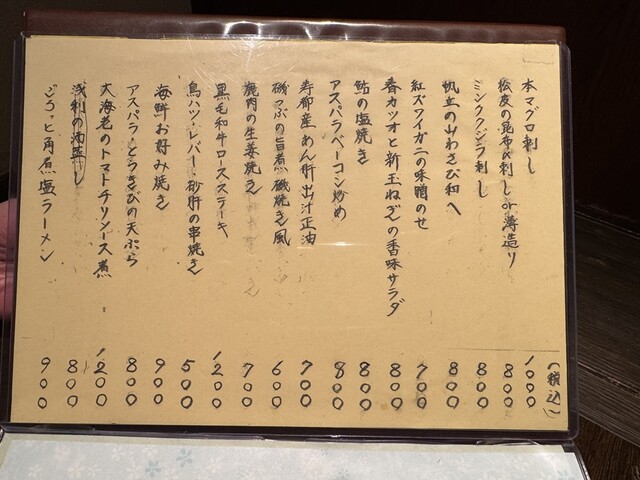 (税込)
本マグロ刺し 1000
松皮の昆布〆刺し or 薄造り 800
ミンククジラ刺し 800
帆立の山わさび和へ 800
紅ズワイガニの味噌のせ 700
春カツオと新玉ねぎの香味サラダ 800
鮎の塩焼き 800
アスパラベーコン炒め 800
寿都産あん肝出汁正油 700
磯つぶの旨煮 磯焼き風 600
鹿肉の生姜焼き 700
黒毛和牛ロースステーキ 1200
鳥ハツ・レバー・砂肝の串焼き 500
海鮮お好み焼き 900
アスパラととうきびの天ぷら 800
大海老のトマトチリソース煮 1200
浅利の酒蒸し 800
どろっと角煮塩ラーメン 900